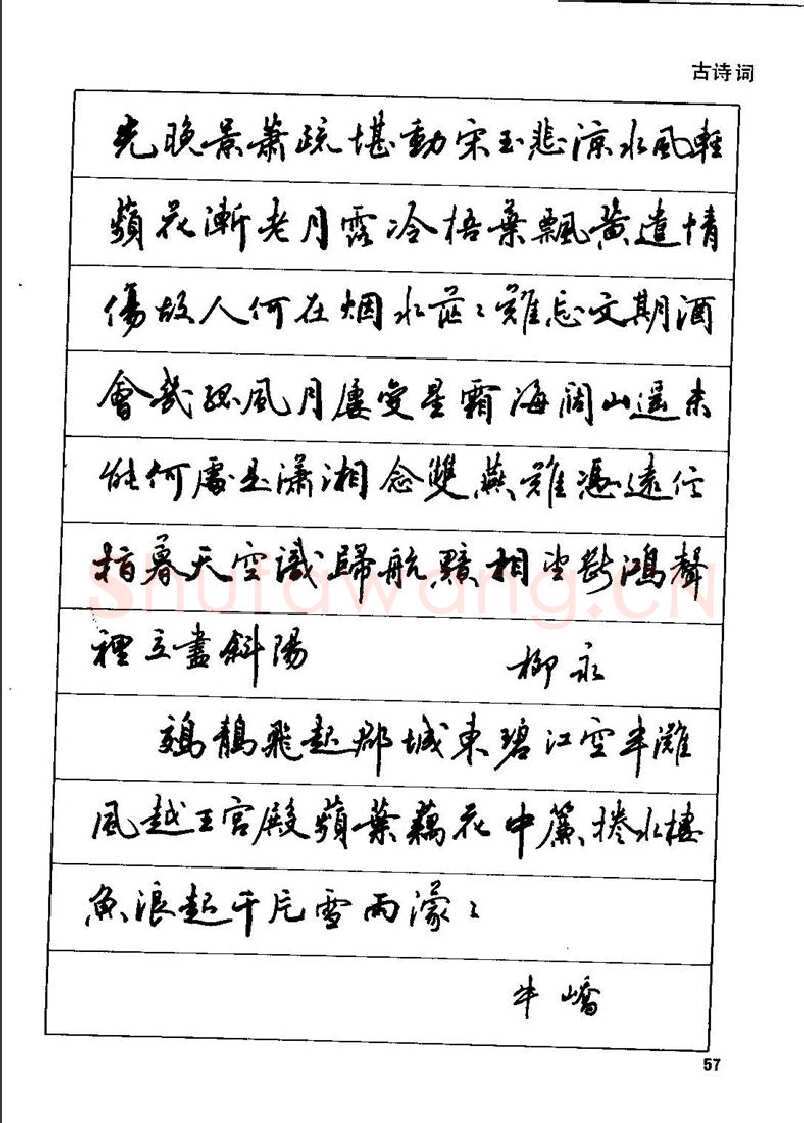 古诗词
光晚景蕭疏堪動宋玉悲涼水風輕
蘋花漸老月露冷梧葉飄黃遣情
傷故人何在烟水茫〻難忘文期酒
會幾孤風月屢變星霜海闊山遥未
知何處是瀟湘念雙燕難憑遠信
指暮天空識歸航黯相望斷鴻聲
裡立盡斜陽 柳永
鵁鶄飛起郡城東碧江空半灘
風越王宮殿蘋葉藕花中簾捲水樓
魚浪起千片雪雨濛〻
牛嶠
57
shufawang.CN